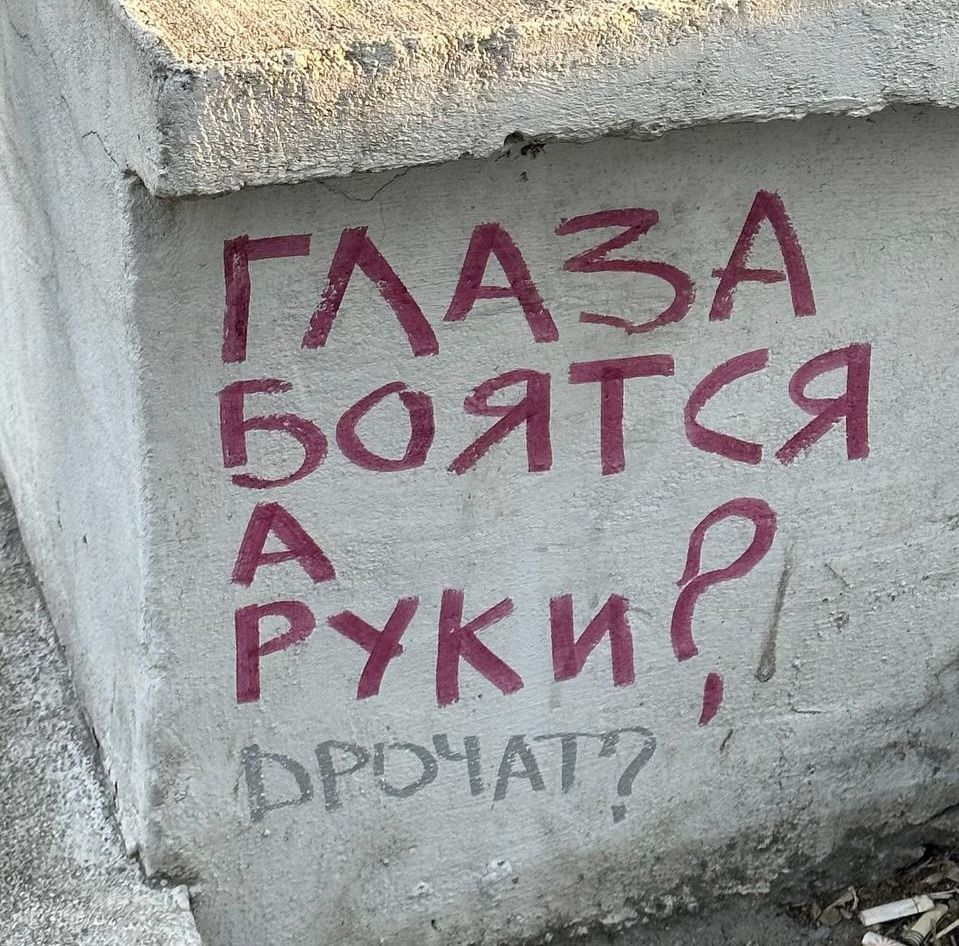 ГЛАЗА
БОЯТСЯ
А
РУКИ?
DРОЧАТ?